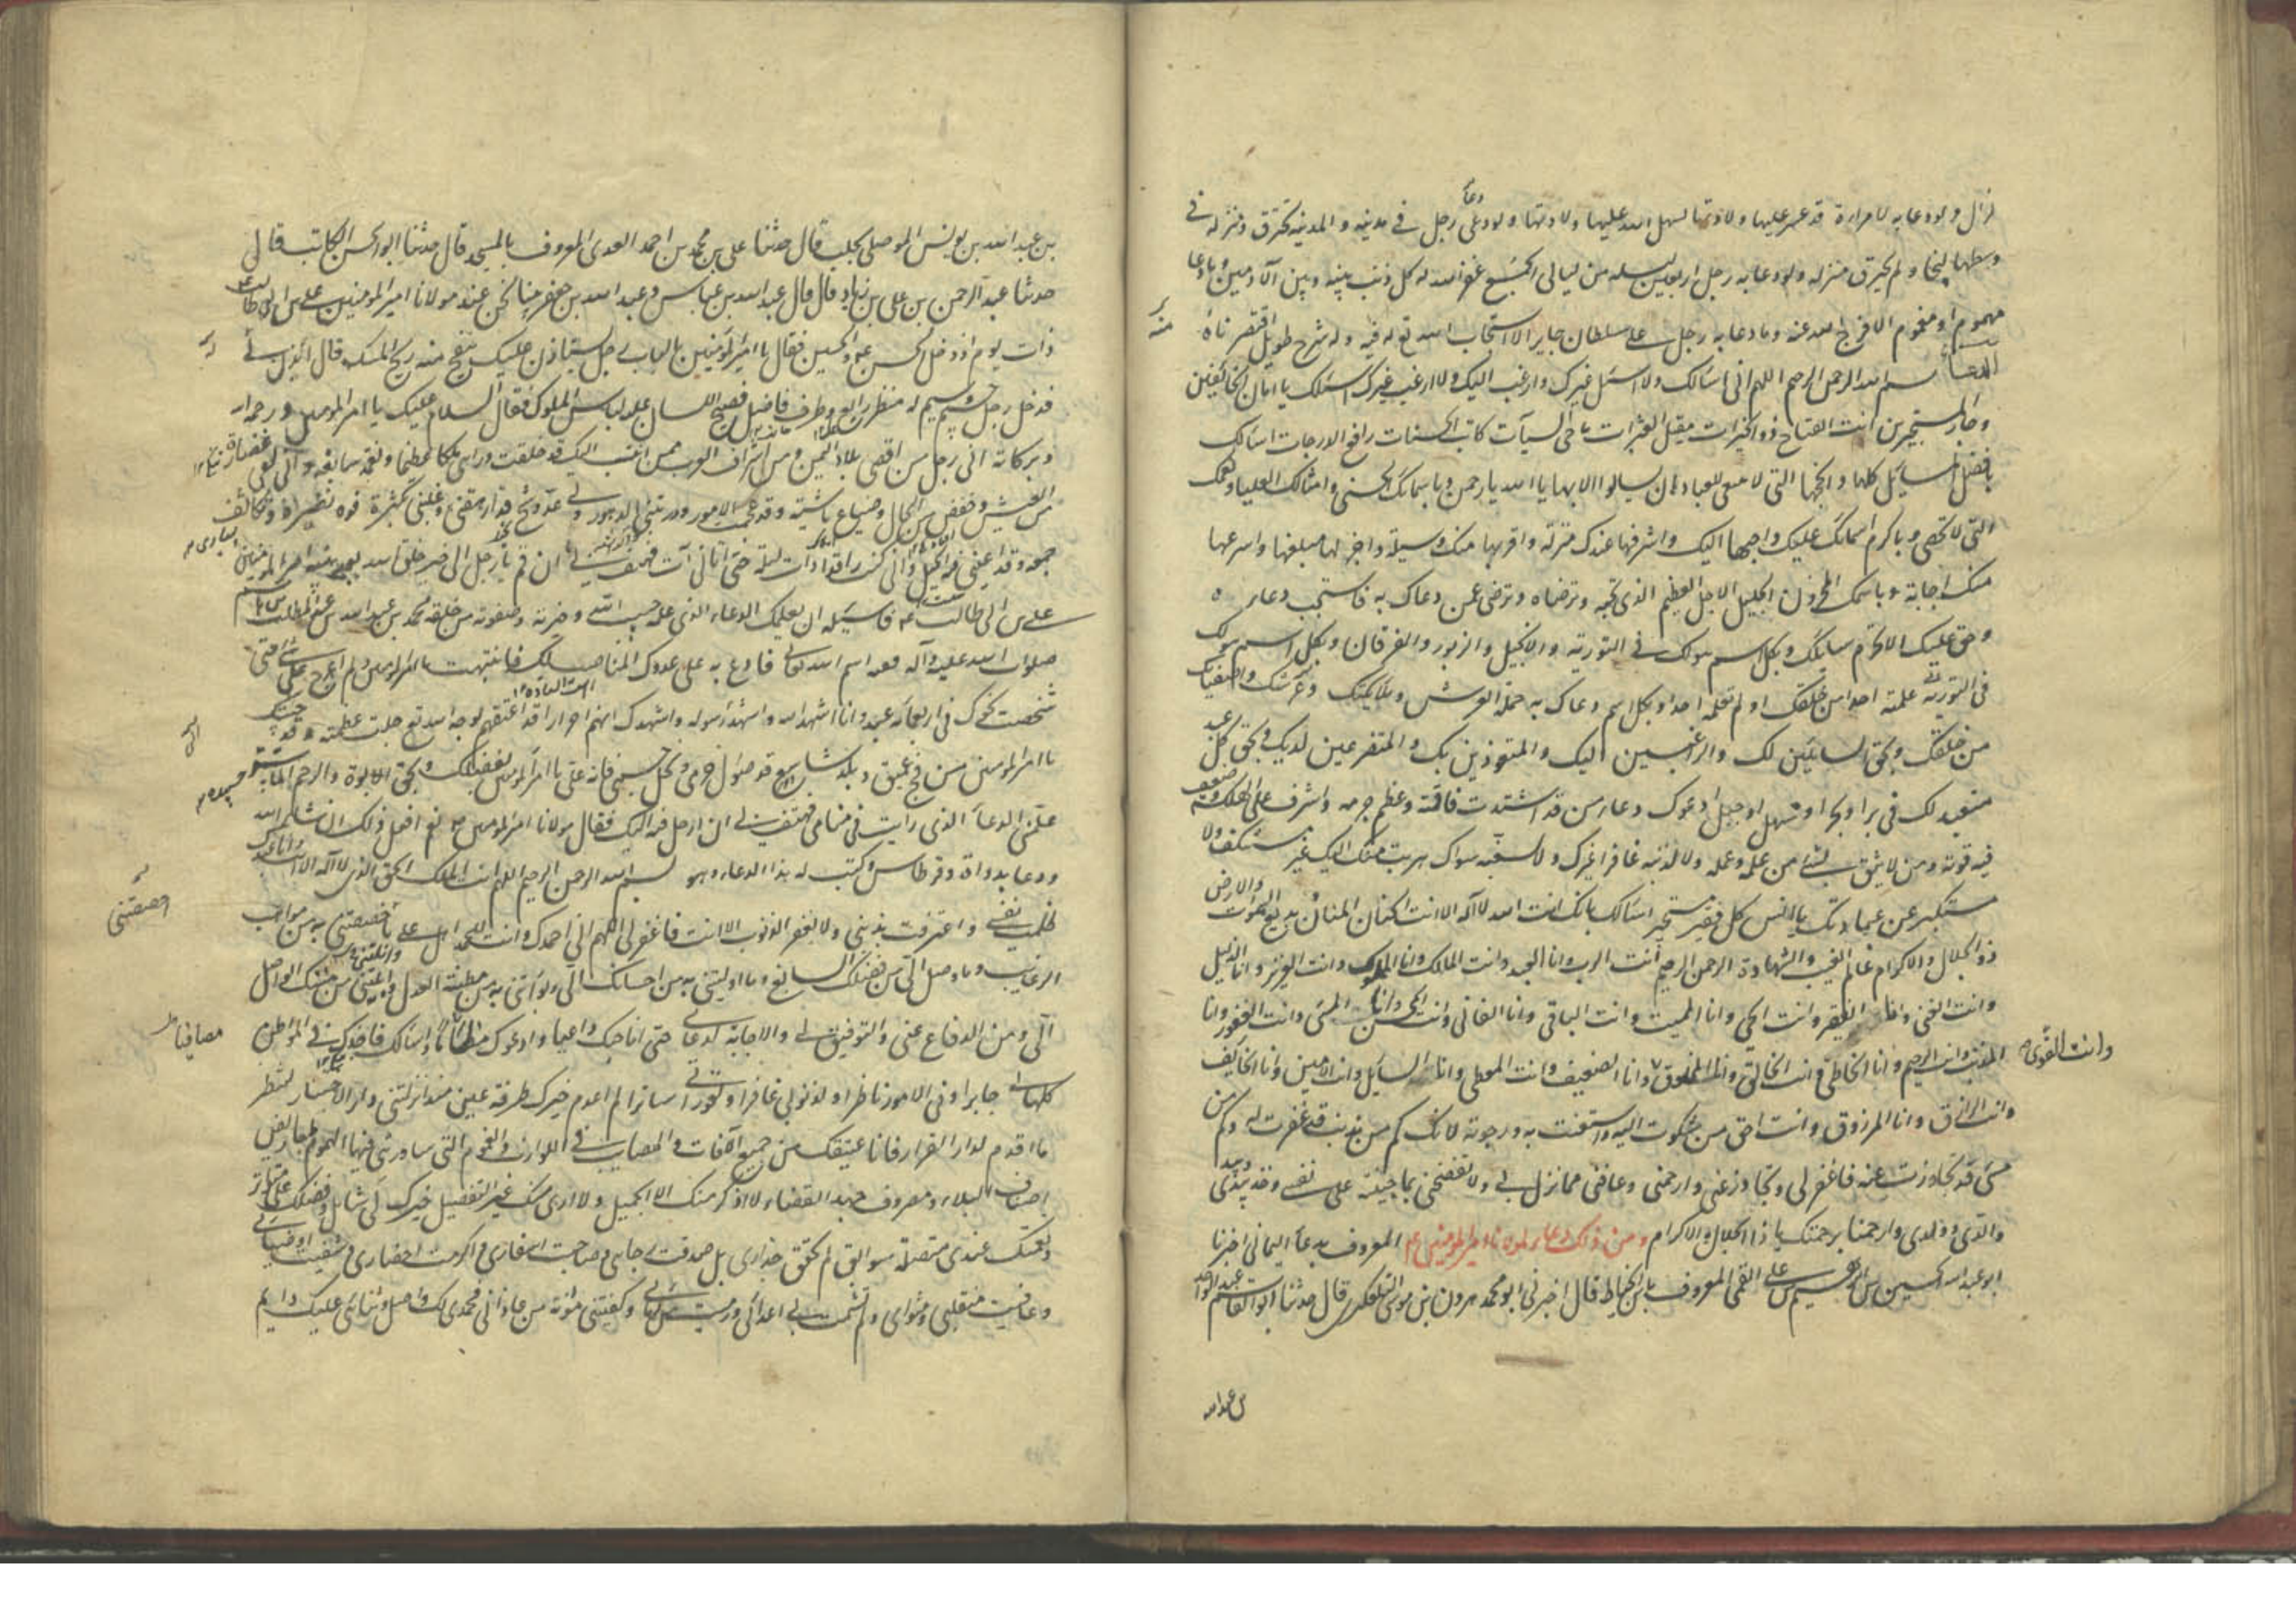 لزال ولو دعا به لامرأة قد عسر عليها ولادتها لسهل الله عليها ولادتها ولو دعا رجل في مدينة والمدينة تحترق ومنزله في
وسطها لنجا ولم يحترق منزله ولو دعا به رجل اربعين ليلة من ليالي الجمع غفر الله له كل ذنب بينه وبين الآدميين وما دعا
مهموم او مغموم الا فرج الله عنه وما دعا به رجل على سلطان جاير الا استجاب الله تع له فيه وله شرح طويل اقتصرناه
منه
الدعا بسم الله الرحمن الرحيم اللهم اني اسالك ولا اسئل غيرك وارغب اليك ولا ارغب غيرك اسئلك يا امان الخائفين
وجار المستجيرين انت الفتاح ذو الخيرات مقيل العثرات ماحي السيآت كاتب الحسنات رافع الدرجات اسالك
بافضل المسائل كلها وانجحها التي لا ينبغي للعباد ان يسالوا الا بها يا الله يا رحمن وباسمائك الحسنى وامثالك العليا ونعمك
التي لا تحصى وباكرم اسمائك عليك واحبها اليك واشرفها عندك منزلة واقربها منك وسيلة واجزلها مبلغها واسرعها
منك اجابة وباسمك المخزون الجليل الاجل العظيم الذي تحبه وترضاه وترضى عمن دعاك به فاستجب دعاءه
وحق عليك الا تحرم سايلك وبكل اسم هو لك في التورية والانجيل والزبور والفرقان وبكل اسم هو لك
علمته احدا من خلقك او لم تعلمه احدا وبكل اسم دعاك به حملة العرش وملائكتك واصفياؤك
من خلقك وبحق السايلين لك والراغبين اليك والمتعوذين بك والمتضرعين لديك وبحق كل عبد
متعبد لك في بر او بحر او سهل او جبل ادعوك دعاء من قد اشتدت فاقته وعظم جرمه واشرف على الهلكة وضعفت
قوته ومن لا يثق بشئ من عمله ولا لذنبه غافرا غيرك ولا لسعيه سواك هربت منك اليك غير مستنكف ولا
مستكبر عن عبادتك يا انس كل فقير مستجير اسالك بانك انت الله لا آله الا انت الحنان المنان بديع السموات والارض
ذو الجلال والاكرام عالم الغيب والشهادة الرحمن الرحيم انت الرب وانا العبد وانت المالك وانا المملوك وانت العزيز وانا الذليل
وانت الغني وانا الفقير وانت الحي وانا الميت وانت الباقي وانا الفاني وانت المحسن وانا المسئ وانت الغفور وانا
المذنب وانت الرحيم وانا الخاطئ وانت الخالق وانا المخلوق وانا الضعيف وانت المعطي وانا السايل وانت الامين وانا الخائف
وانت القوي
وانت الرازق وانا المرزوق وانت احق من شكوت اليه واستغثت به ورجوته لانك كم من مذنب قد غفرت له وكم من
مسئ قد تجاوزت عنه فاغفر لي وتجاوز عني وارحمني وعافني مما نزل بي ولا تفضحني بما جنيته على نفسي وخذ بيدي وبيد
والدي وولدي وارحمنا برحمتك يا ذا الجلال والاكرام ومن ذلك دعاء لمولانا امير المؤمنين ع م المعروف بدعاء اليماني اخبرنا
ابو عبد الله الحسين بن ابرهيم بن علي القمي المعروف بابن الخياط قال اخبرني ابو محمد هرون بن موسى التلعكبري قال حدثنا ابو القاسم عبد الواحد
بن عبد الله
بن عبد الله بن يونس الموصلي بحلب قال حدثنا علي بن محمد بن احمد العدى المعروف بالمسجد قال حدثنا ابو الحسن الكاتب قال
حدثنا عبد الرحمن بن علي بن زياد قال قال عبد الله بن عباس وعبد الله بن جعفر بينا نحن عند مولانا امير المؤمنين علي بن ابي طالب
ذات يوم اذ دخل الحسن ع م والحسين فقال يا امير المؤمنين بالباب رجل يستاذن عليك ينفح منه ريح المسك قال ائذن له
فدخل رجل جسيم وسيم له منظر رايع وطرف فاضل فصيح اللسان عليه لباس الملوك فقال السلام عليك يا امير المؤمنين ورحمة الله
وبركاته اني رجل من اقصى بلاد اليمن ومن اشراف العرب ممن انتسب اليك قد خلفت وراي ملكا عظيما ونعمة سابغة واني لفي غضارة
من العيش وخفض من الحال وضياع ناشية وقد عجمت الامور ودربتني الدهور ولي عدو مشح قد ارهقني وغلبني بكثرة قوة نصرة وتكاثف
جمعه وقد اعيتني فيه الحيل واني كنت راقدا ذات ليلة حتى اتاني آت فهتف بي ان قم يا رجل الى خير خلق الله بعد نبيه امير المؤمنين
علي بن ابي طالب ع م فاسئله ان يعلمك الدعاء الذي علمه حبيب الله وخيرته وصفوته من خلقه محمد بن عبد الله بن عبد المطلب
صلوات الله عليه وآله ففيه اسم الله تعالى فادع به على عدوك المناصب لك فانتبهت يا امير المؤمنين ولم اعرج على شئ حتى
شخصت نحوك في اربعمائة عبد وانا اشهد الله واشهد رسوله واشهدك انهم احرار قد اعتقتهم لوجه الله تع جلت عظمته وقد جئتك
يا امير المؤمنين من فج عميق وبلد شاسع قد ضؤل جرمي ونحل جسمي فامنن علي يا امير المؤمنين بفضلك وبحق الابوة والرحم الماسة
علمني الدعاء الذي رايت في منامي وهتف بي ان ارحل فيه اليك فقال مولانا امير المؤمنين نعم افعل ذلك ان شاء الله
ودعا بدواة وقرطاس وكتب له هذا الدعاء وهو بسم الله الرحمن الرحيم اللهم انت الملك الحق الذي لا آله الا انت وانا عبدك
ظلمت نفسي واعترفت بذنبي ولا يغفر الذنوب الا انت فاغفر لي اللهم اني احمدك وانت للحمد اهل على ما خصصتني به من مواهب
الرغائب وما وصل الي من فضلك السابغ وما اوليتني به من احسانك الي وبوأتني به من مظنة العدل وانلتني من منك الواصل
الي ومن الدفاع عني والتوفيق لي والاجابة لدعائي حتى اناجيك داعيا وادعوك مضاما واسالك فاجدك في المواطن
مصافيا
كلها لي جابرا وفي الامور ناظرا ولذنوبي غافرا ولعوراتي ساترا لم اعدم خيرك طرفة عين منذ انزلتني دار الاختبار لتنظر
ما اقدم لدار القرار فانا عتيقك من جميع الآفات والمصايب في اللوازب والغموم التي ساورتني فيها الهموم بمعاريض
اصناف البلاء ومصروف جهد القضاء لا اذكر منك الا الجميل ولا ارى منك غير التفضيل خيرك لي شامل وفضلك علي متواتر
ونعمتك عندي متصلة سوابق لم تحقق حذاري بل صدقت رجائي وصاحبت اسفاري واكرمت احضاري وشفيت اوصابي
وعافيت منقلبي ومثواي ولم تشمت بي اعدائي ورميت من رماني وكفيتني مؤنة من عاداني فحمدي لك واصل وثنائي عليك دايم